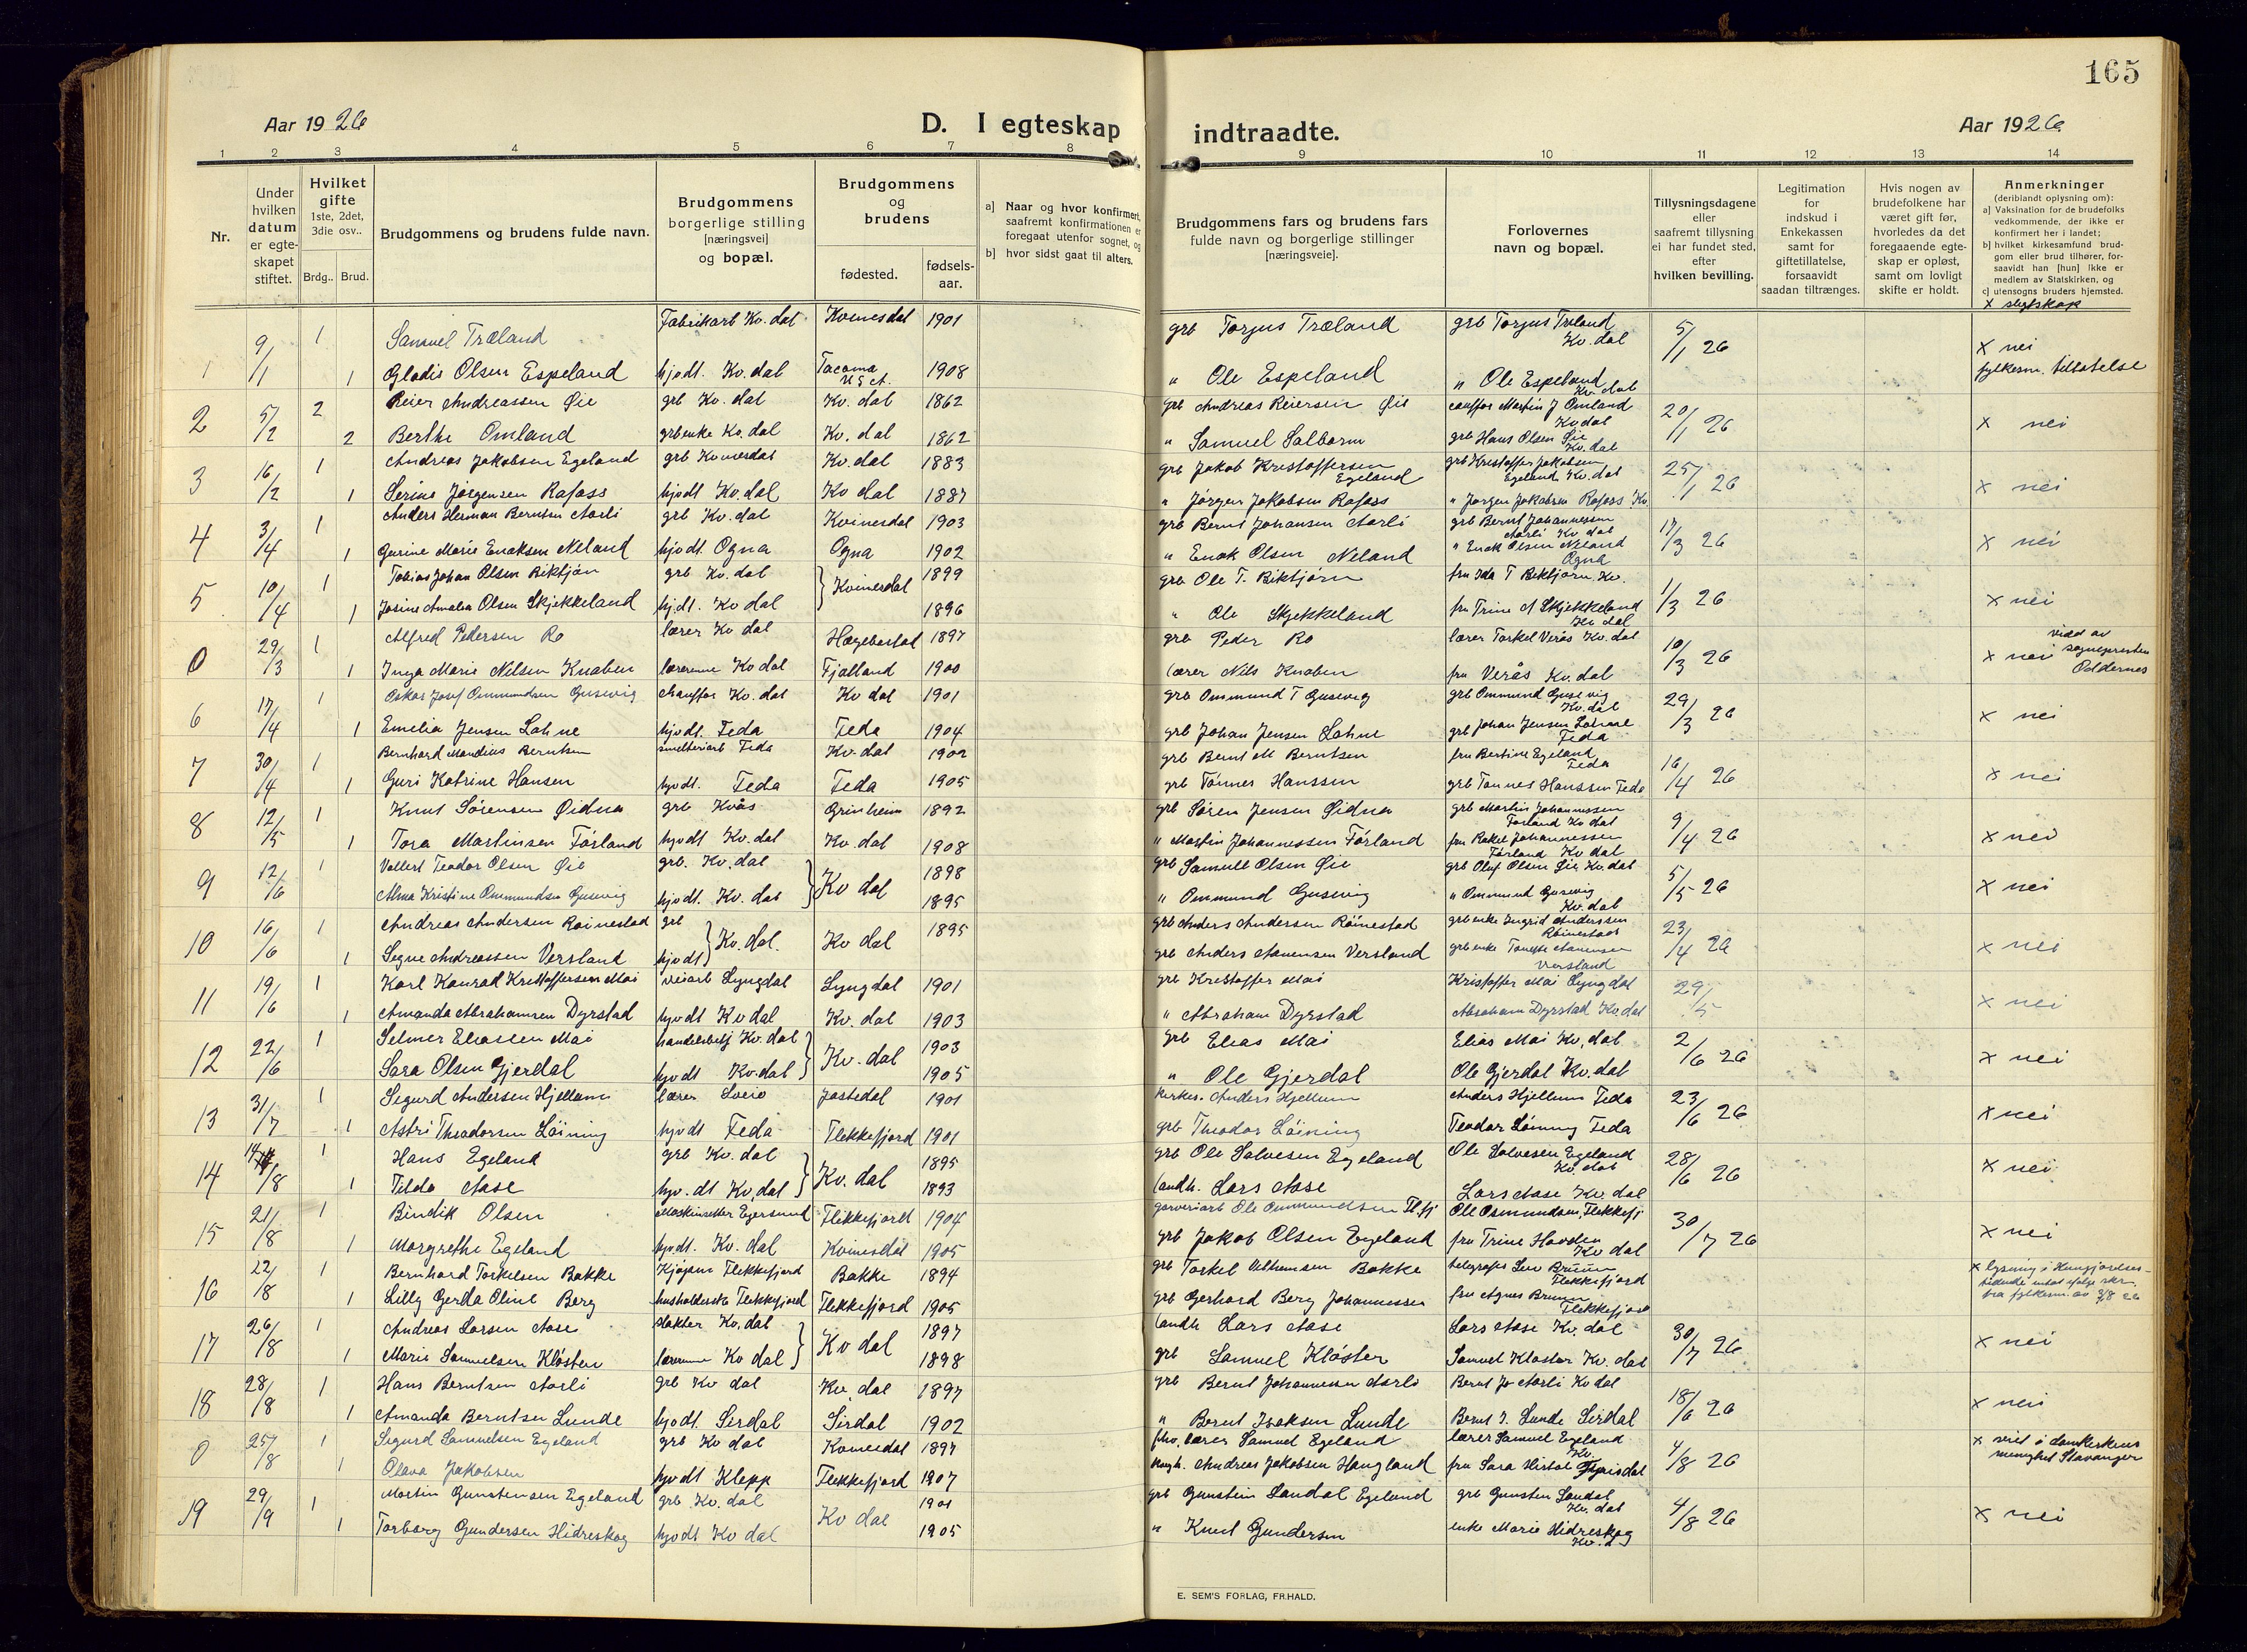 165
Aar 1926
D. I egteskap indtraadte.
Aar 1926
1 2 3 4 5 6 7 8 9 10 11 12 13 14
Nr.
Under hvilken datum er egteskapet stiftet.
Hvilket gifte 1ste, 2det, 3die osv..
Brdg.. Brud.
Brudgommens og brudens fulde navn.
Brudgommens borgerlige stilling [næringsvei] og bopæl.
Brudgommens og brudens
fødested. fødselsaar.
a] Naar og hvor konfirmert, saafremt konfirmationen er foregaat utenfor sognet, og
b] hvor sidst gaat til alters.
Brudgommens fars og brudens fars fulde navn og borgerlige stillinger [næringsveie].
Forlovernes navn og bopæl.
Tillysningsdagene eller saafremt tillysning ei har fundet sted, efter hvilken bevilling.
Legitimation for indskud i Enkekassen samt for giftetillatelse, forsaavidt saadan tiltrænges.
Hvis nogen av brudefolkene har været gift før, hvorledes da det foregaaende egteskap er opløst, samt om lovligt skifte er holdt.
Anmerkninger (deriblandt oplysning om):
a] Vaksination for de brudefolks vedkommende, der ikke er konfirmert her i landet;
b] hvilket kirkesamfund brudgom eller brud tilhører, forsaavidt han [hun] ikke er medlem av Statskirken, og
c] utensogns bruders hjemsted.
x slegtskap
1 9/1 1 Samuel Træland Fabrikarb Kv. dal Kvinesdal 1901 grb Torjus Træland grb Torjus Træland Kv. dal 5/1 26 x nei
1 Gladis Olsen Espeland hjvdt. Kv. dal Tacoma U S A. 1908 " Ole Espeland " Ole Espeland Kv. dal fylkesm. tillatelse
2 5/2 2 Reier Andreassen Øie grb Kv. dal Kv. dal 1862 grb Andreas Reiersen Øie Martin J Omland Kv dal 20/1 26 x nei
2 Berthe Omland grbenke Kv. dal Kv. dal 1862 " Samuel Salbørn grb Hans Olsen Øie Kv. dal
3 16/2 1 Andreas Jakobsen Egeland grb Kvinesdal Kv. dal 1883 grb Jakob Kristoffersen Egeland grb Kristoffer Jakobsen Egeland Kv. dal 25/1 26 x nei
1 Serine Jørgensen Rafoss hjvdt Kv. dal Kv dal 1887 " Jørgen Jakobsen Rafoss " Jørgen Jakobsen Rafoss Kv.
4 3/4 1 Anders Herman Berntsen Aarli grb Kv. dal Kvinesdal 1903 grb Bernt Johansen Aarli grb Bernt Johannessen Aarli Kv dal 17/3 26 x nei
1 Gurine Marie Enoksen Neland hjvdt. Ogna Ogna 1902 " Enok Olsen Neland " Enok Olsen Neland Ogna
5 10/4 1 Tobias Johan Olsen Birktjøn grb Kv. dal } Kvinesdal 1899 grb Ole T. Birktjørn fru Ida T Birktjørn Kv. 1/3 26 x nei
1 Josine Amalia Olsen Skjekkeland hj.dt. Kv dal 1896 " Ole Skjekkeland fru Trine A Skjekkeland Kv dal
0 29/3 1 Alfred Pedersen Ro lærer Kv dal Hægebostad 1897 grb Peder Ro lærer Torkel Verås Kv. dal 10/3 26 x nei viet av sognepresten Oldernes
1 Inga Marie Nilsen Knaben lærerinne Kv dal Fjotland 1900 lærer Nils Knaben fru Verås Kv. dal
6 17/4 1 Oskar Josef Ommundsen Gusevig chauffør Kv. dal Kv dal 1901 grb Ommund T Gusevig grb Ommund Gusevig Kv. dal 29/3 26 x nei
1 Emelia Jensen Lohne hjvdt. Feda Feda 1904 grb Johan Jensen Lohne grb Johan Jensen Lohne Feda
7 30/4 1 Bernhard Mandius Berntsen smelteriarb Feda Kv. dal 1902 grb Bernt M Berntsen fru Bertine Egeland Feda 16/4 26 x nei
1 Guri Katrine Hansen hjvdt. Feda Feda 1905 grb Tønnes Hanssen grb Tønnes Hanssen Feda
8 12/5 1 Knut Sørensen Øidna grb Kvås Grinheim 1892 grb Søren Jensen Øidna grb Martin Johannessen Førland Kv dal 9/4 26 x nei
1 Tora Martinsen Førland hjvdt Kv. dal Kv. dal 1908 " Martin Johannessen Førland fru Rakel Johannessen Førland Kv dal
9 12/6 1 Vollert Teodor Olsen Øie grb. Kv. dal } Kv dal 1898 grb Samuel Olsen Øie grb Oluf Olsen Øie Kv. dal 5/5 26 x nei
Alma Kristine Ommundsen Gusevig hjvdt. Kv. dal 1895 " Ommund Gusevig " Ommund Gusevig Kv. dal
10 16/6 1 Andreas Andersen Røinestad grb } Kv. dal. Kv dal 1895 grb Anders Andersen Røinestad grbenke Ingrid Anderssen Røinestad 23/4 26 x nei
1 Segne Andreassen Versland hjvdt grb Anders Aanensen Versland grbenke Tonette Aanensen Versland
11 19/6 1 Karl Konrad Kristoffersen Moi veiarb Lyngdal Lyngdal 1901 grb Kristoffer Moi Kristoffer Moi Lyngdal 29/5 x nei
1 Amanda Abrahamsen Dyrstad hjvdt Kv dal Kv. dal 1903 " Abraham Dyrstad Abraham Dyrstad Kv. dal
12 22/6 1 Selmer Eliassen Moi handelsbetj Kv. dal } Kv. dal 1903 grb Elias Moi Elias Moi Kv. dal 2/6 26 x nei
Sara Olsen Gjerdal hjvdt Kv. dal 1905 " Ole Gjerdal Ole Gjerdal Kv. dal
13 31/7 1 Sigurd Andersen Hjellum lærer Sveio Jostedal 1901 kirkes. Anders Hjellum Anders Hjellum Feda 23/6 26 x nei
1 Astri Theodorsen Løining hjvdt Feda Flekkefjord 1901 grb Theodor Løining Teodor Løining Feda
14 14/8 1 Hans Egeland grb Kv. dal } Kv. dal 1895 grb Ole Salvesen Egeland Ole Salvesen Egeland Kv. dal 28/6 26 x nei
1 Tilda Aase hjv. dt Kv. dal 1893 landh. Lars Aase Lars Aase Kv. dal
15 21/8 1 Bindik Olsen Maskinsetter Egersund Flekkefjord 1904 garveriarb Ole Ommundsen Fl.fj Ole Osmundsen, Flekkefj 30/7 26 x nei
1 Margrethe Egeland hjvdt. Kv. dal Kvinesdal 1905 grb Jakob Olsen Egeland fru Trine Hovden Kv dal
16 22/8 1 Bernhard Torkelsen Bakke Flekkefjord Bakke 1894 grb Torkel Bakke Bruun Flekkefjord x lysning i
1 Lilly Gerda Oline Berg husholderske Flekkefjord Flekkefjord 1905 grb Gerhard Berg Johannessen fru Agnes Bruun Flekkefjord fra fylkesm. av 2/8 26
17 26/8 1 Andreas Larsen Aase slakter Kv. dal } Kv dal 1897 landh Lars Aase Lars Aase Kv. dal 30/7 26 x nei
1 Marie Samuelsen Kløster lærerinne Kv dal 1898 grb Samuel Kløster Samuel Kløster Kv. dal
18 28/8 1 Hans Berntsen Aarli grb Kv dal Kv. dal 1897 grb Bernt Johannessen Aarli Bernt Jo Aarli Kv dal 18/6 26 x nei
1 Amanda Berntsen Lunde hjvdt. Sirdal Sirdal 1902 " Bernt Isaksen Lunde Bernt I. Lunde Sirdal
0 25/8 1 Sigurd Samuelsen Egeland grb Kv dal Kvinesdal 1897 fhv. lærer Samuel Egeland lærer Samuel Egeland Kv. 4/8 26 x viet i domkirkens menighet Stavanger
1 Olava Jakobsen hjvdt Klepp Flekkefjord 1907 Andreas Jakobsen Haugland fru Sara
19 29/9 1 Martin Gunstensen Egeland grb Kv. dal Kv dal 1901 grb Gunstein Landal Egeland grb Gunsten Landal Kv. dal 4/8 26 x nei
1 Torborg Gundersen Hidreskog hjvdt Kv dal 1905 " Knut Gundersen enke Marie Hidreskog Kv. d
E. SEM'S FORLAG, FR.HALD.